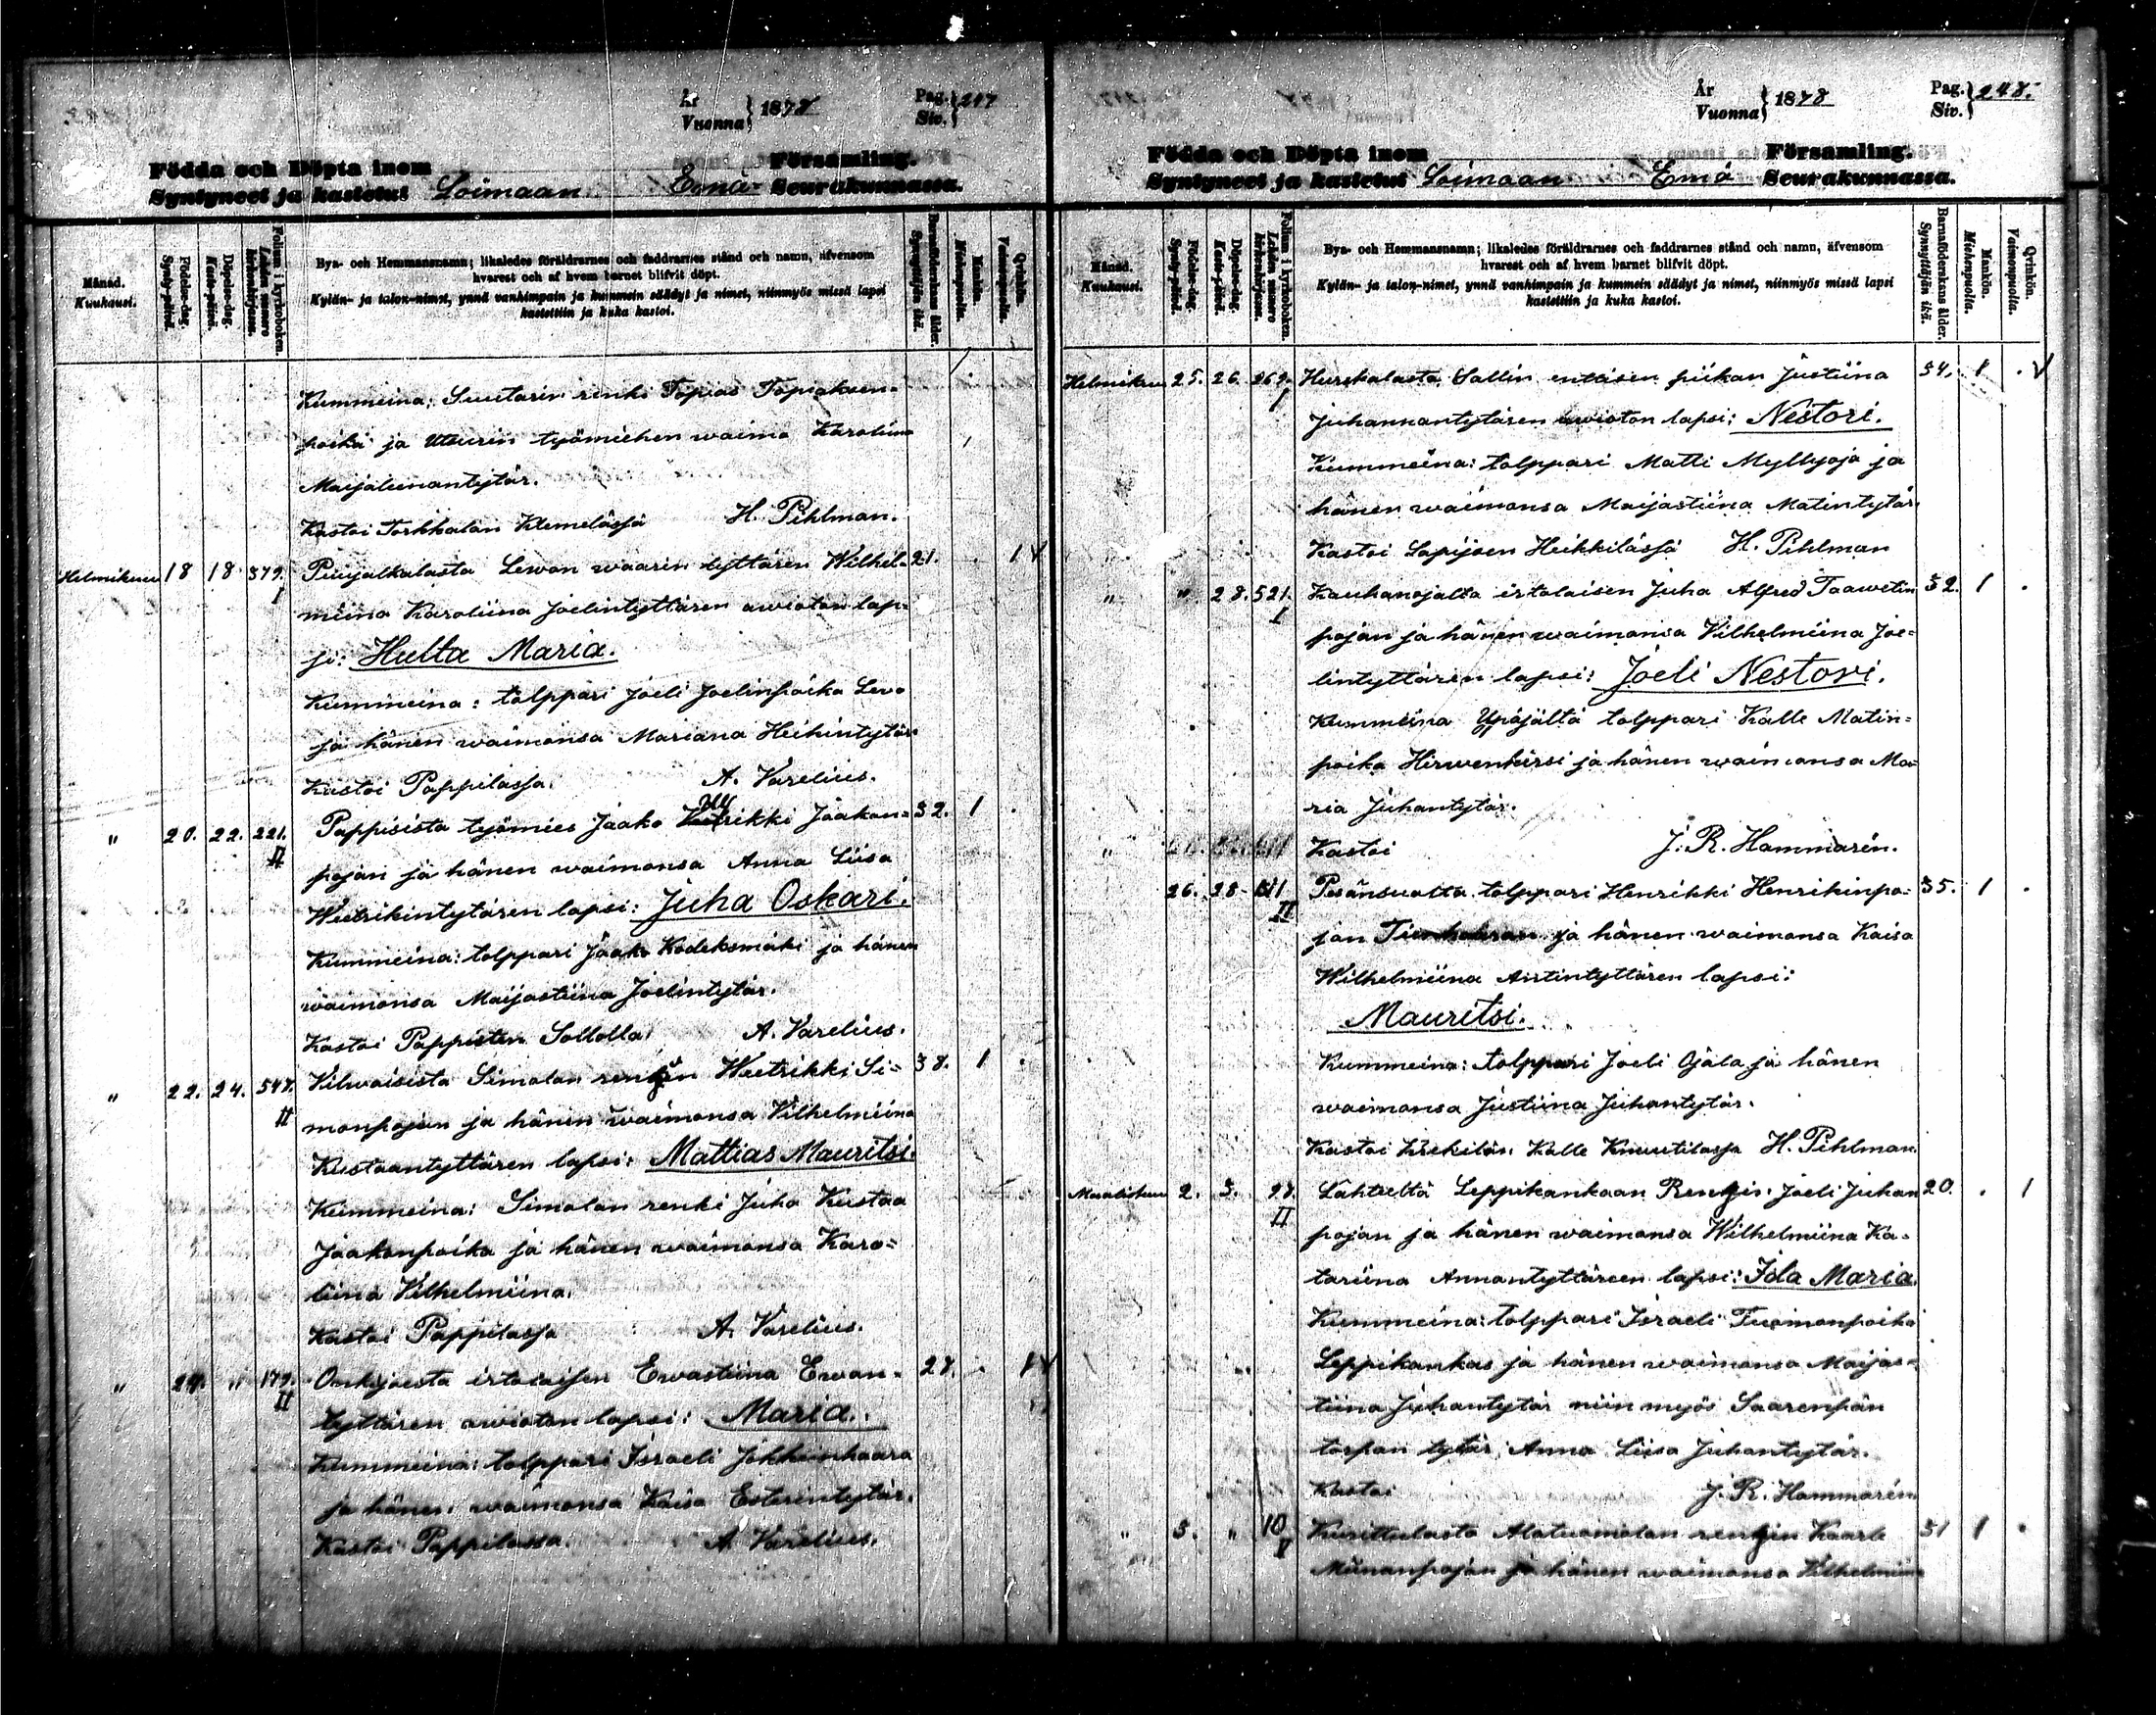 År
Vuonna } 1878
Pag.
Siv. } 247
Födda och Döpta inom Församling.
Syntyneet ja kastetut Loimaan Emä Seurakunnassa.
Månad.
Kuukausi.
Födelse-dag.
Synty-päivä.
Döpelse-dag.
Kaste-päivä.
Folium i kyrkoboken.
Lehden numero kirkonkirjassa.
Bya- och Hemmansnamn; likaledes föräldrarnes och faddrarnes stånd och namn, äfvensom
hvarest och af hvem barnet blifvit döpt.
Kylän- ja talon-nimet, ynnä vanhimpain ja kummein säädyt ja nimet, niinmyös missä lapsi
kastettiin ja kuka kastoi.
Barnaföderskans ålder.
Synnyttäjän ikä.
Mankön.
Miehenpuolia.
Qvinkön.
Vaimonpuolia.
Kummeina: Suutarin renki Topias Topiaksen-
poika ja työmiehen waimo Karoliina
Maijaleenantytär.
Kastoi Torkkalan Klemelässä H. Pihlman.
Helmikuu 18 18 379. I Puujalkalasta Lewon waarin tyttären Wilhel- 21. 1
miina Karoliina Joelintyttären awioton lap-
si: Hulta Maria.
Kummeina: tolppari Joeli Joelinpoika Lewo
ja hänen waimonsa Mariana Heikintytär.
Kastoi Pappilassa. A. Varelius.
" 20. 22. 221. II Pappisista työmies Jaako Jaakon- 32. 1
pojan ja hänen waimonsa Anna Liisa
Wietrikintytären lapsi: Juha Oskari.
Kummeina: tolppari Jaako Kodeksmäki ja hänen
waimonsa Maijastiina Joelintytär.
Kastoi Pappisten Sollolla A. Varelius.
" 22. 24. 547. II Vilwaisista Simolan rengin Wietrikki Si- 38. 1
monpojan ja hänen waimonsa Vilhelmiina
Kustaantyttären lapsi: Mattias Mauritsi.
Kummeina: Simolan renki Juha Kustaa
Jaakonpoika ja hänen waimonsa Karo-
liina Vilhelmiina.
Kastoi Pappilassa A. Varelius.
" 24. " 179. II Onkijoesta irtolaisen Ewastiina Ewan- 28. 1
tyttären awioton lapsi: Maria.
Kummeina: tolppari Israeli
ja hänen waimonsa Kaisa Esterintytär.
Kastoi Pappilassa. A. Varelius.
År
Vuonna } 1878
Pag.
Siv. } 248.
Födda och Döpta inom Församling.
Syntyneet ja kastetut Loimaan Emä Seurakunnassa.
Månad.
Kuukausi.
Födelse-dag.
Synty-päivä.
Döpelse-dag.
Kaste-päivä.
Folium i kyrkoboken.
Lehden numero kirkonkirjassa.
Bya- och Hemmansnamn; likaledes föräldrarnes och faddrarnes stånd och namn, äfvensom
hvarest och af hvem barnet blifvit döpt.
Kylän- ja talon-nimet, ynnä vanhimpain ja kummein säädyt ja nimet, niinmyös missä lapsi
kastettiin ja kuka kastoi.
Barnaföderskans ålder.
Synnyttäjän ikä.
Mankön.
Miehenpuolia.
Qvinkön.
Vaimonpuolia.
Helmikuu 25. 26. 269. I Hurskalasta Sallin entisen piikan Justiina 34. 1
Juhannantytären awioton lapsi: Nestori.
Kummeina: tolppari Matti Myllyoja ja
hänen waimonsa Maijastiina Matintytär.
Kastoi Lapijoen Heikkilässä H. Pihlman
" " 28. 521. I Kauhanojalta irtolaisen Juha Alfred Taawetin 32. 1
pojan ja hänen waimonsa Vilhelmiina Joe-
lintyttären lapsi: Joeli Nestori.
Kummeina Ypäjältä tolppari Kalle Matin-
poika Hirwenkirsi ja hänen waimonsa Ma-
ria Juhantytär.
Kastoi J. R. Hammarén.
26. 28 II Pesänsuolta tolppari Henrikki Henrikinpo- 35. 1
jan ja hänen waimonsa Kaisa
Wilhelmiina Antintyttären lapsi:
Mauritsi.
Kummeina: tolppari Joeli Ojala ja hänen
waimonsa Justiina Juhantytär.
Kastoi Krekilän Kalle Knuutilassa H. Pihlman.
Maaliskuu 2. 3. 98. II Lähteeltä Leppikankaan Rengin Joeli Juhan 20. 1
pojan ja hänen waimonsa Wilhelmiina Ka-
tariina Annantyttäreen lapsi: Ida Maria.
Kummeina: tolppari Israeli Tuomonpoika
Leppikankas ja hänen waimonsa Maijas-
tiina Juhantytär niin myös Saarenpän
torpan tytär Anna Liisa Juhantytär.
Kastoi J. R. Hammarén
" 3. " 10 V Kurittulasta Alatuomolan rengin Kaarle 31 1
ja hänen waimonsa Vilhelmiina